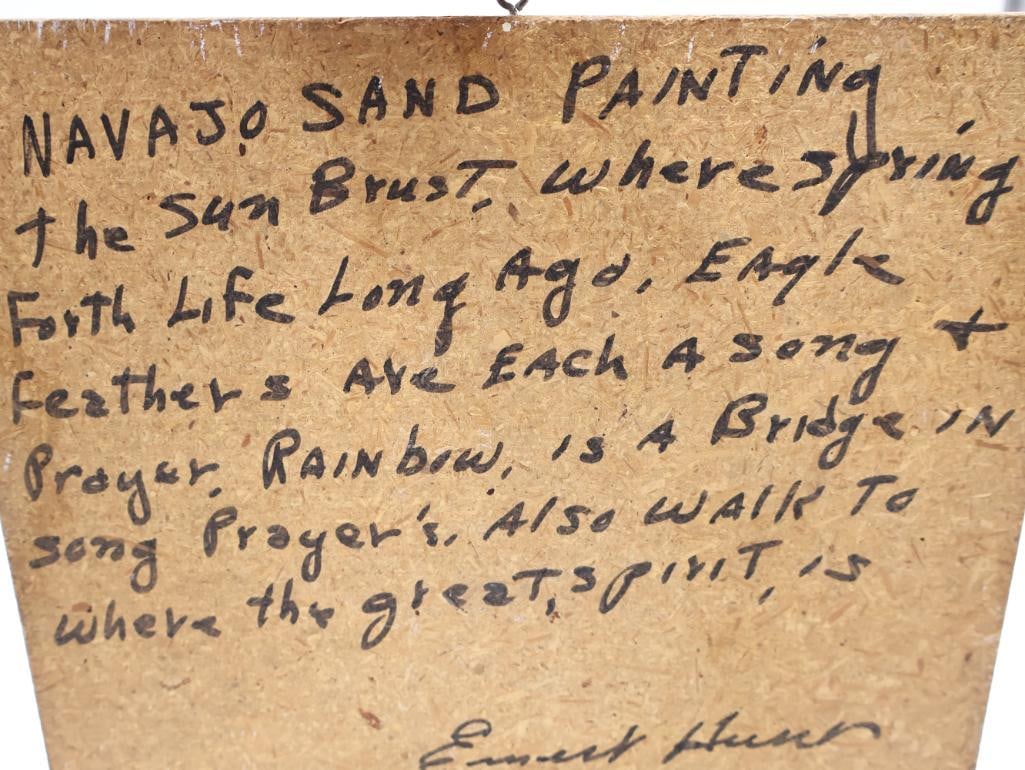 NAVAJO SAND PAINTING
the Sun Brust, where spring
Forth Life Long Ago, Eagle
Feathers Are EAch A song +
Prayer, RAINbow, is A Bridge IN
song Prayer's. Also WAlk To
where the great, spirit, is
Ernest Hunt